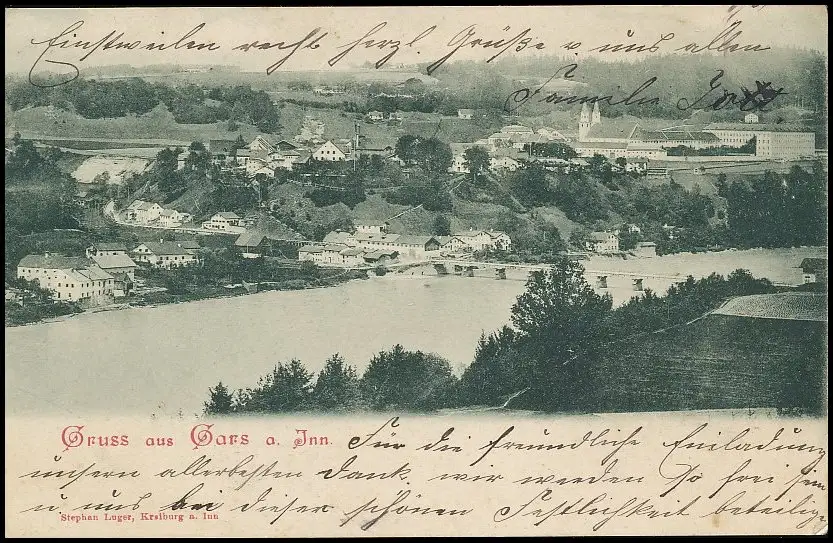 Einstweilen recht herzl. Grüße v uns allen
Familie
Gruss aus Gars a. Inn.
Für die freundliche Einladung
unsern allerbesten Dank, wir werden so frei sein
u uns bei dieser schönen Festlichkeit beteiligen
Stephan Luger, Kraiburg a. Inn